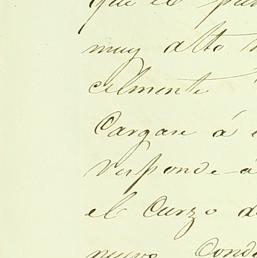 que el
muy alto
celmente
Cargare á
responde á
el Curzo d
nuevo Conde